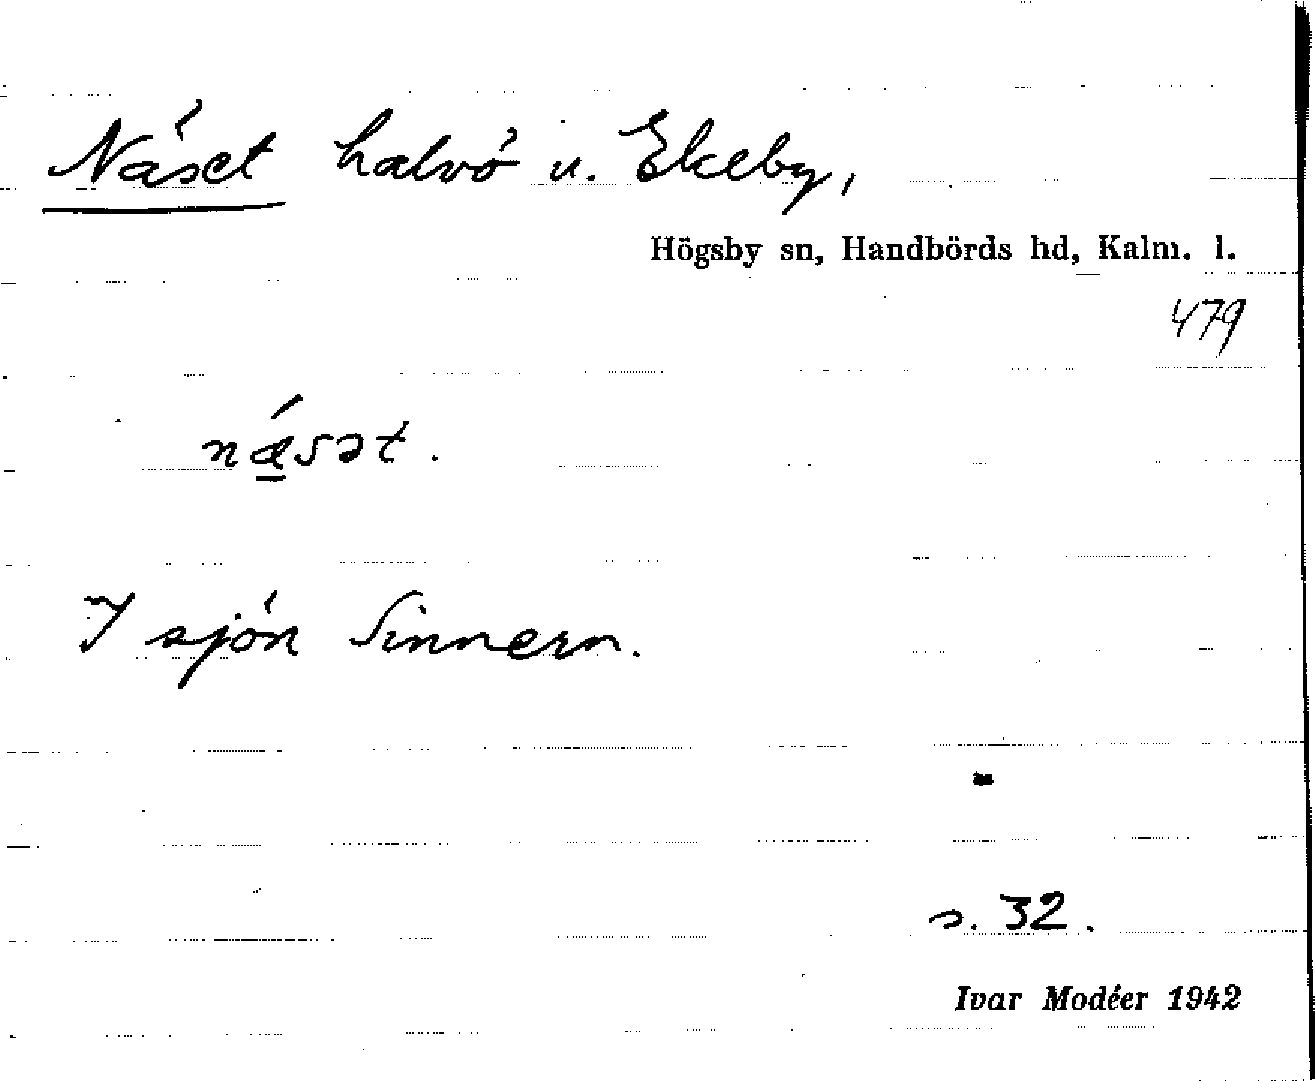 Näset halvö u. Ekeby,
Högsby sn, Handbörds hd, Kalm. l.
479
nǽ̲sət.
I sjön Sinnern.
s. 32.
Ivar Modéer 1942